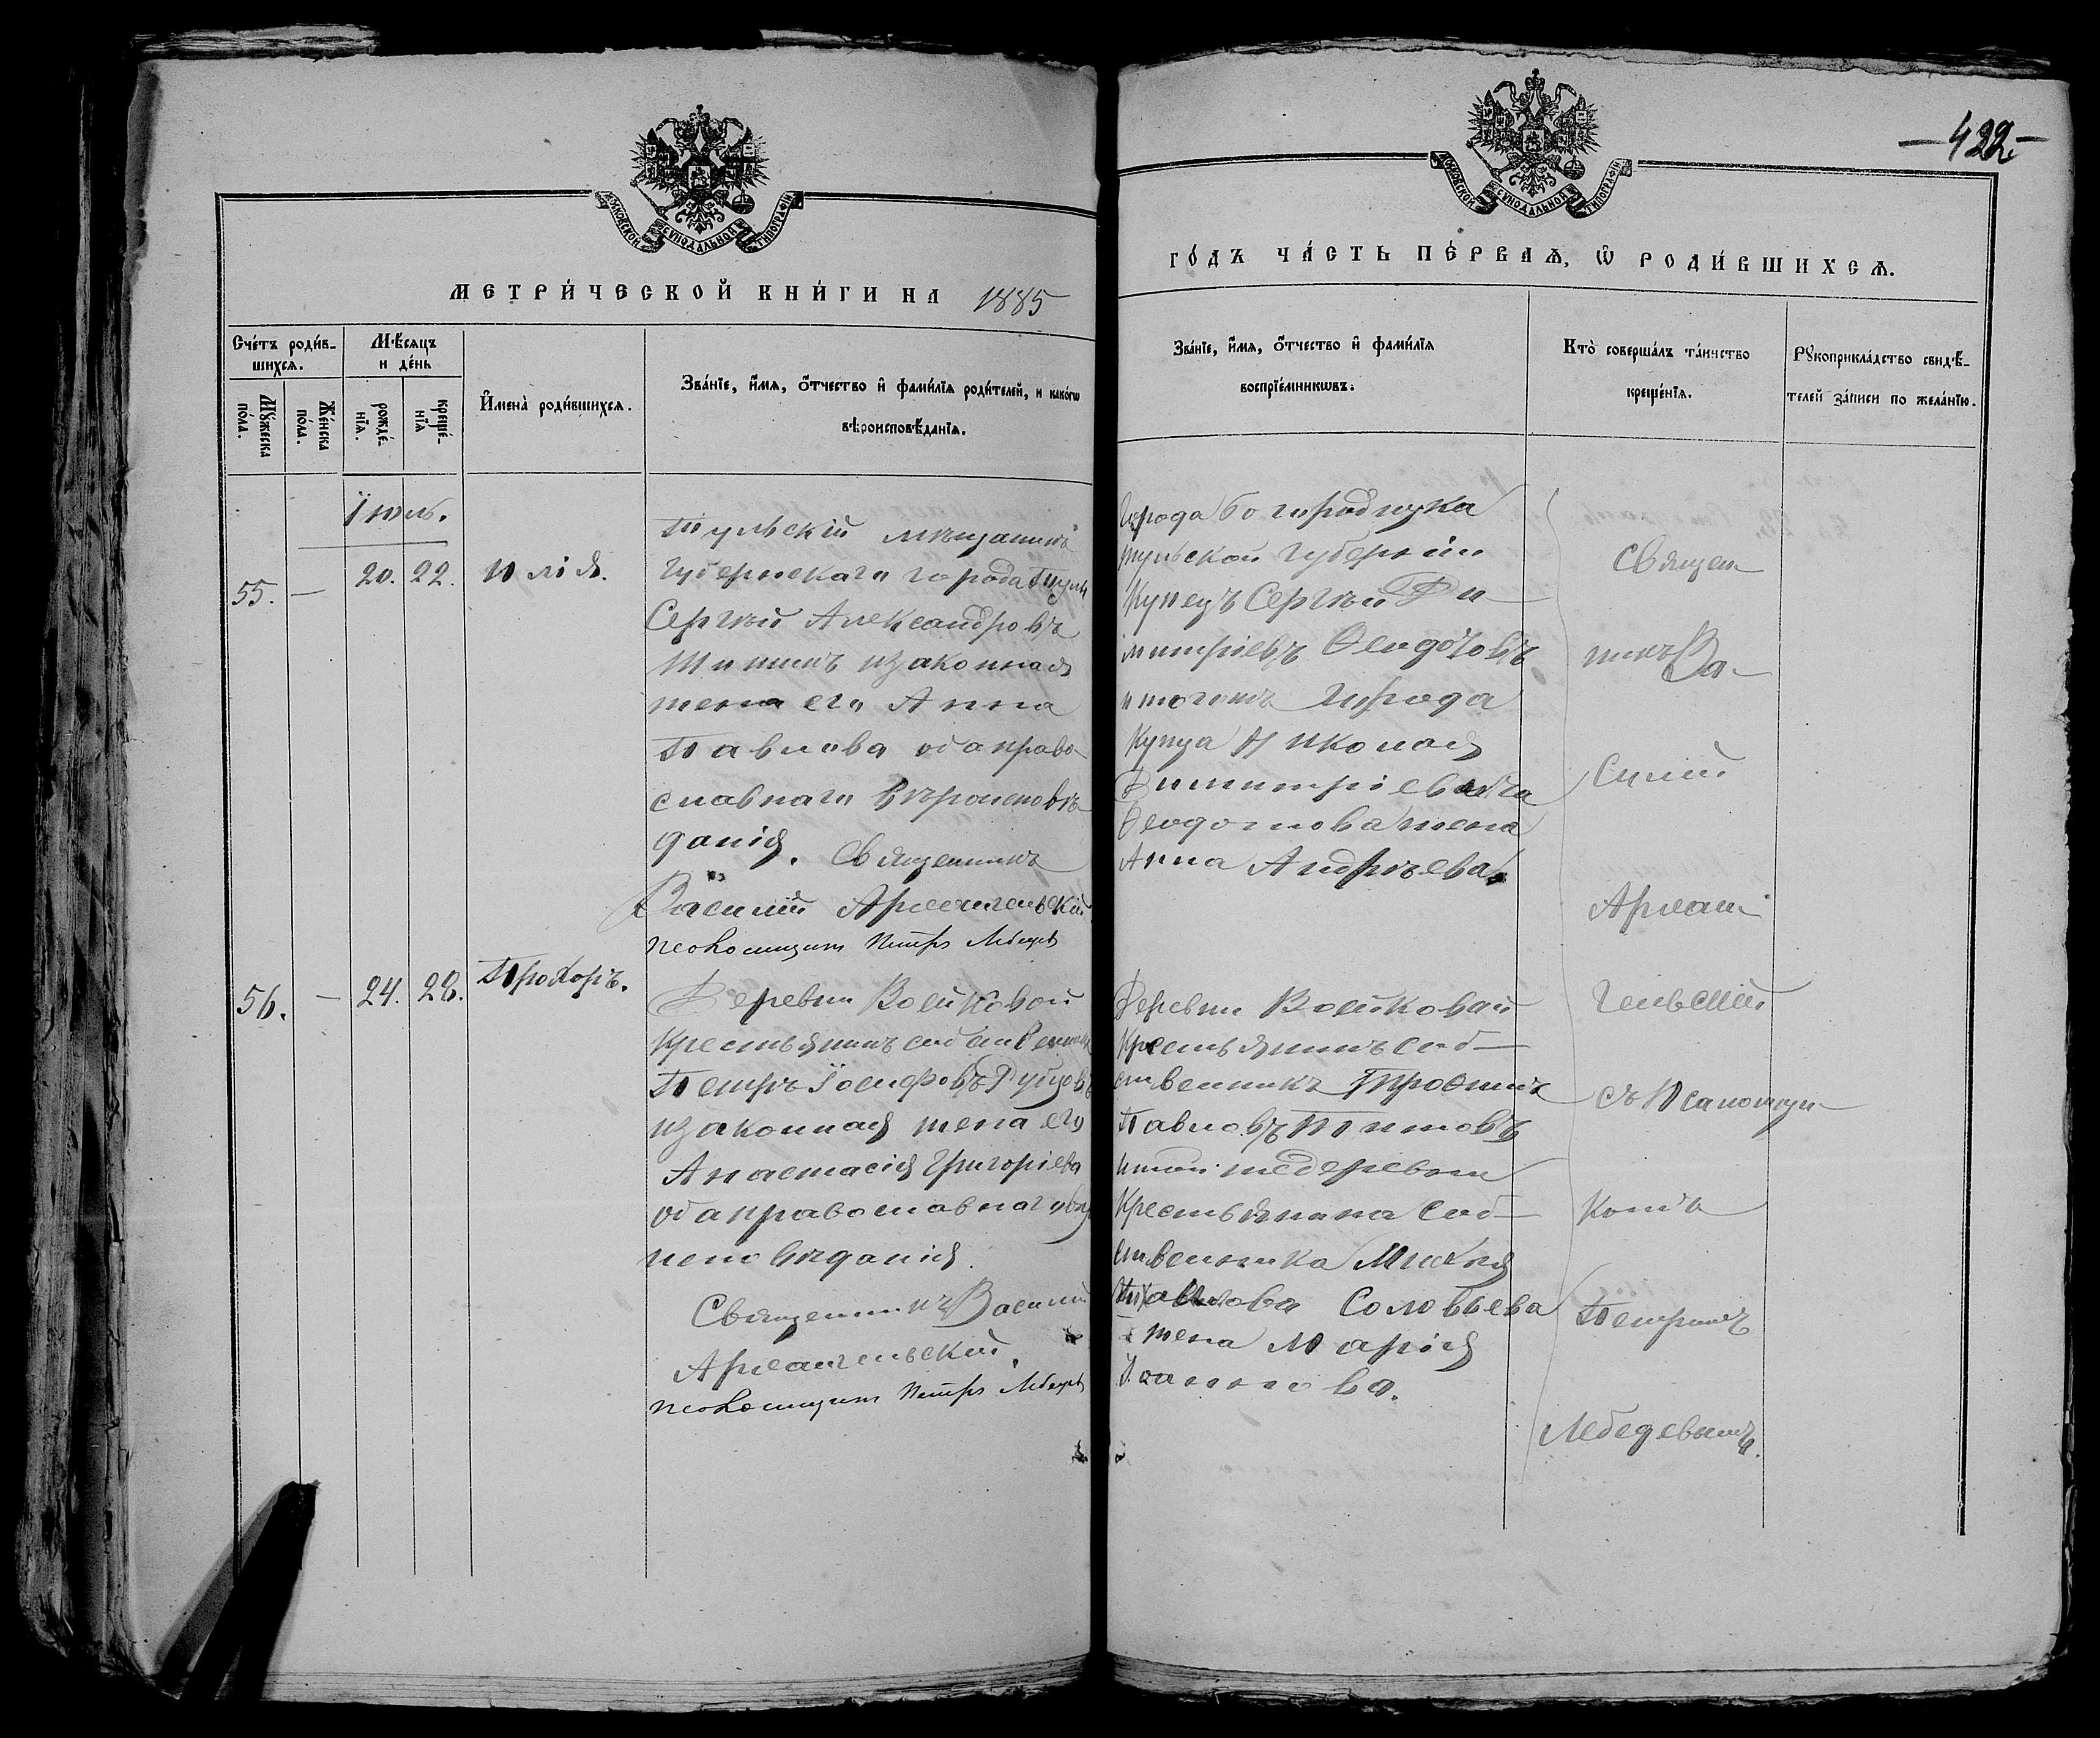 МОСКОВСКОЙ СѴНОДАЛЬНОЙ ТИПОГРАФІИ
МЕТРИ́ЧЕСКОЙ КНИ́ГИ НА 1885
Сче́тъ роди́в-
шихсѧ.
Мѣ́сѧцъ
и де́нь
Мꙋ́жеска
по́ла.
Же́нска
по́ла.
рожде́-
нїѧ.
креще́-
нїѧ
И҆мена̀ роди́вшихсѧ.
Зва́нїе, и҆́мѧ, ѻ҆́тчество и҆ фами́лїѧ роди́телей, и како́гѡ
вѣроисповѣ́данїѧ.
Іюль.
55. — 20. 22. Илія.
Тульскій мѣщанинъ
Губернскаго города Тулы
Сергѣй Александровъ
изаконная
жена его Анна
Павлова оба право
славнаго вѣроисповѣ
данія. Священникъ
Василій Архангельскій
псаломщикъ Петръ Лебедевъ
56. — 24. 28. Прохоръ.
Деревни Войковой
крестьянинъ собственник
Петръ Іосифовъ Рубцовъ
изаконная жена его
Анастасія Григоріева
оба православнаго вѣро
исповѣданія.
Священникъ Василій
Архангельскій.
псаломщикъ Петръ Лебедевъ
— 422 —
МОСКОВСКОЙ СѴНОДАЛЬНОЙ ТИПОГРАФІИ
ГО́ДЪ ЧА́СТЬ ПЕ́РВАѦ, Ѡ҆ РОДИ́ВШИХСѦ.
Зва́нїе, и҆́мѧ, ѻ҆́тчество и҆ фами́лїѧ
воспрїе́мникѡвъ.
Кто̀ соверша́лъ та́инство
креще́нїѧ.
Рꙋкоприкла́дство свидѣ́-
телей за́писи по жела́нїю.
Города Богородицка
Тульской губерніи
Купецъ Сергѣй Ди-
митріевъ Ѳеодотовъ
и тогожъ города
Купца Николая
Димитріевича
Ѳеодотова жена
Анна Андрѣева.
Деревни Войковой
Крестьянинъ соб-
ственникъ Трофимъ
Павловъ Титовъ
и той же деревни
Крестьянина соб-
ственника
Павлова Соловьева
жена Марія
Священ-
никъ Ва-
силій
Архан-
гельскій
съ Псаломщи-
комъ
Петромъ
Лебедевымъ.